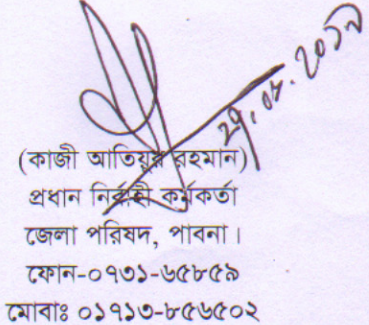 (কাজী আতিয়ুর রহমান)
প্রধান নির্বাহী কর্মকর্তা
জেলা পরিষদ, পাবনা।
ফোন-০৭৩১-৬৫৮৫৯
মোবাঃ ০১৭১৩-৮৫৬৫০২